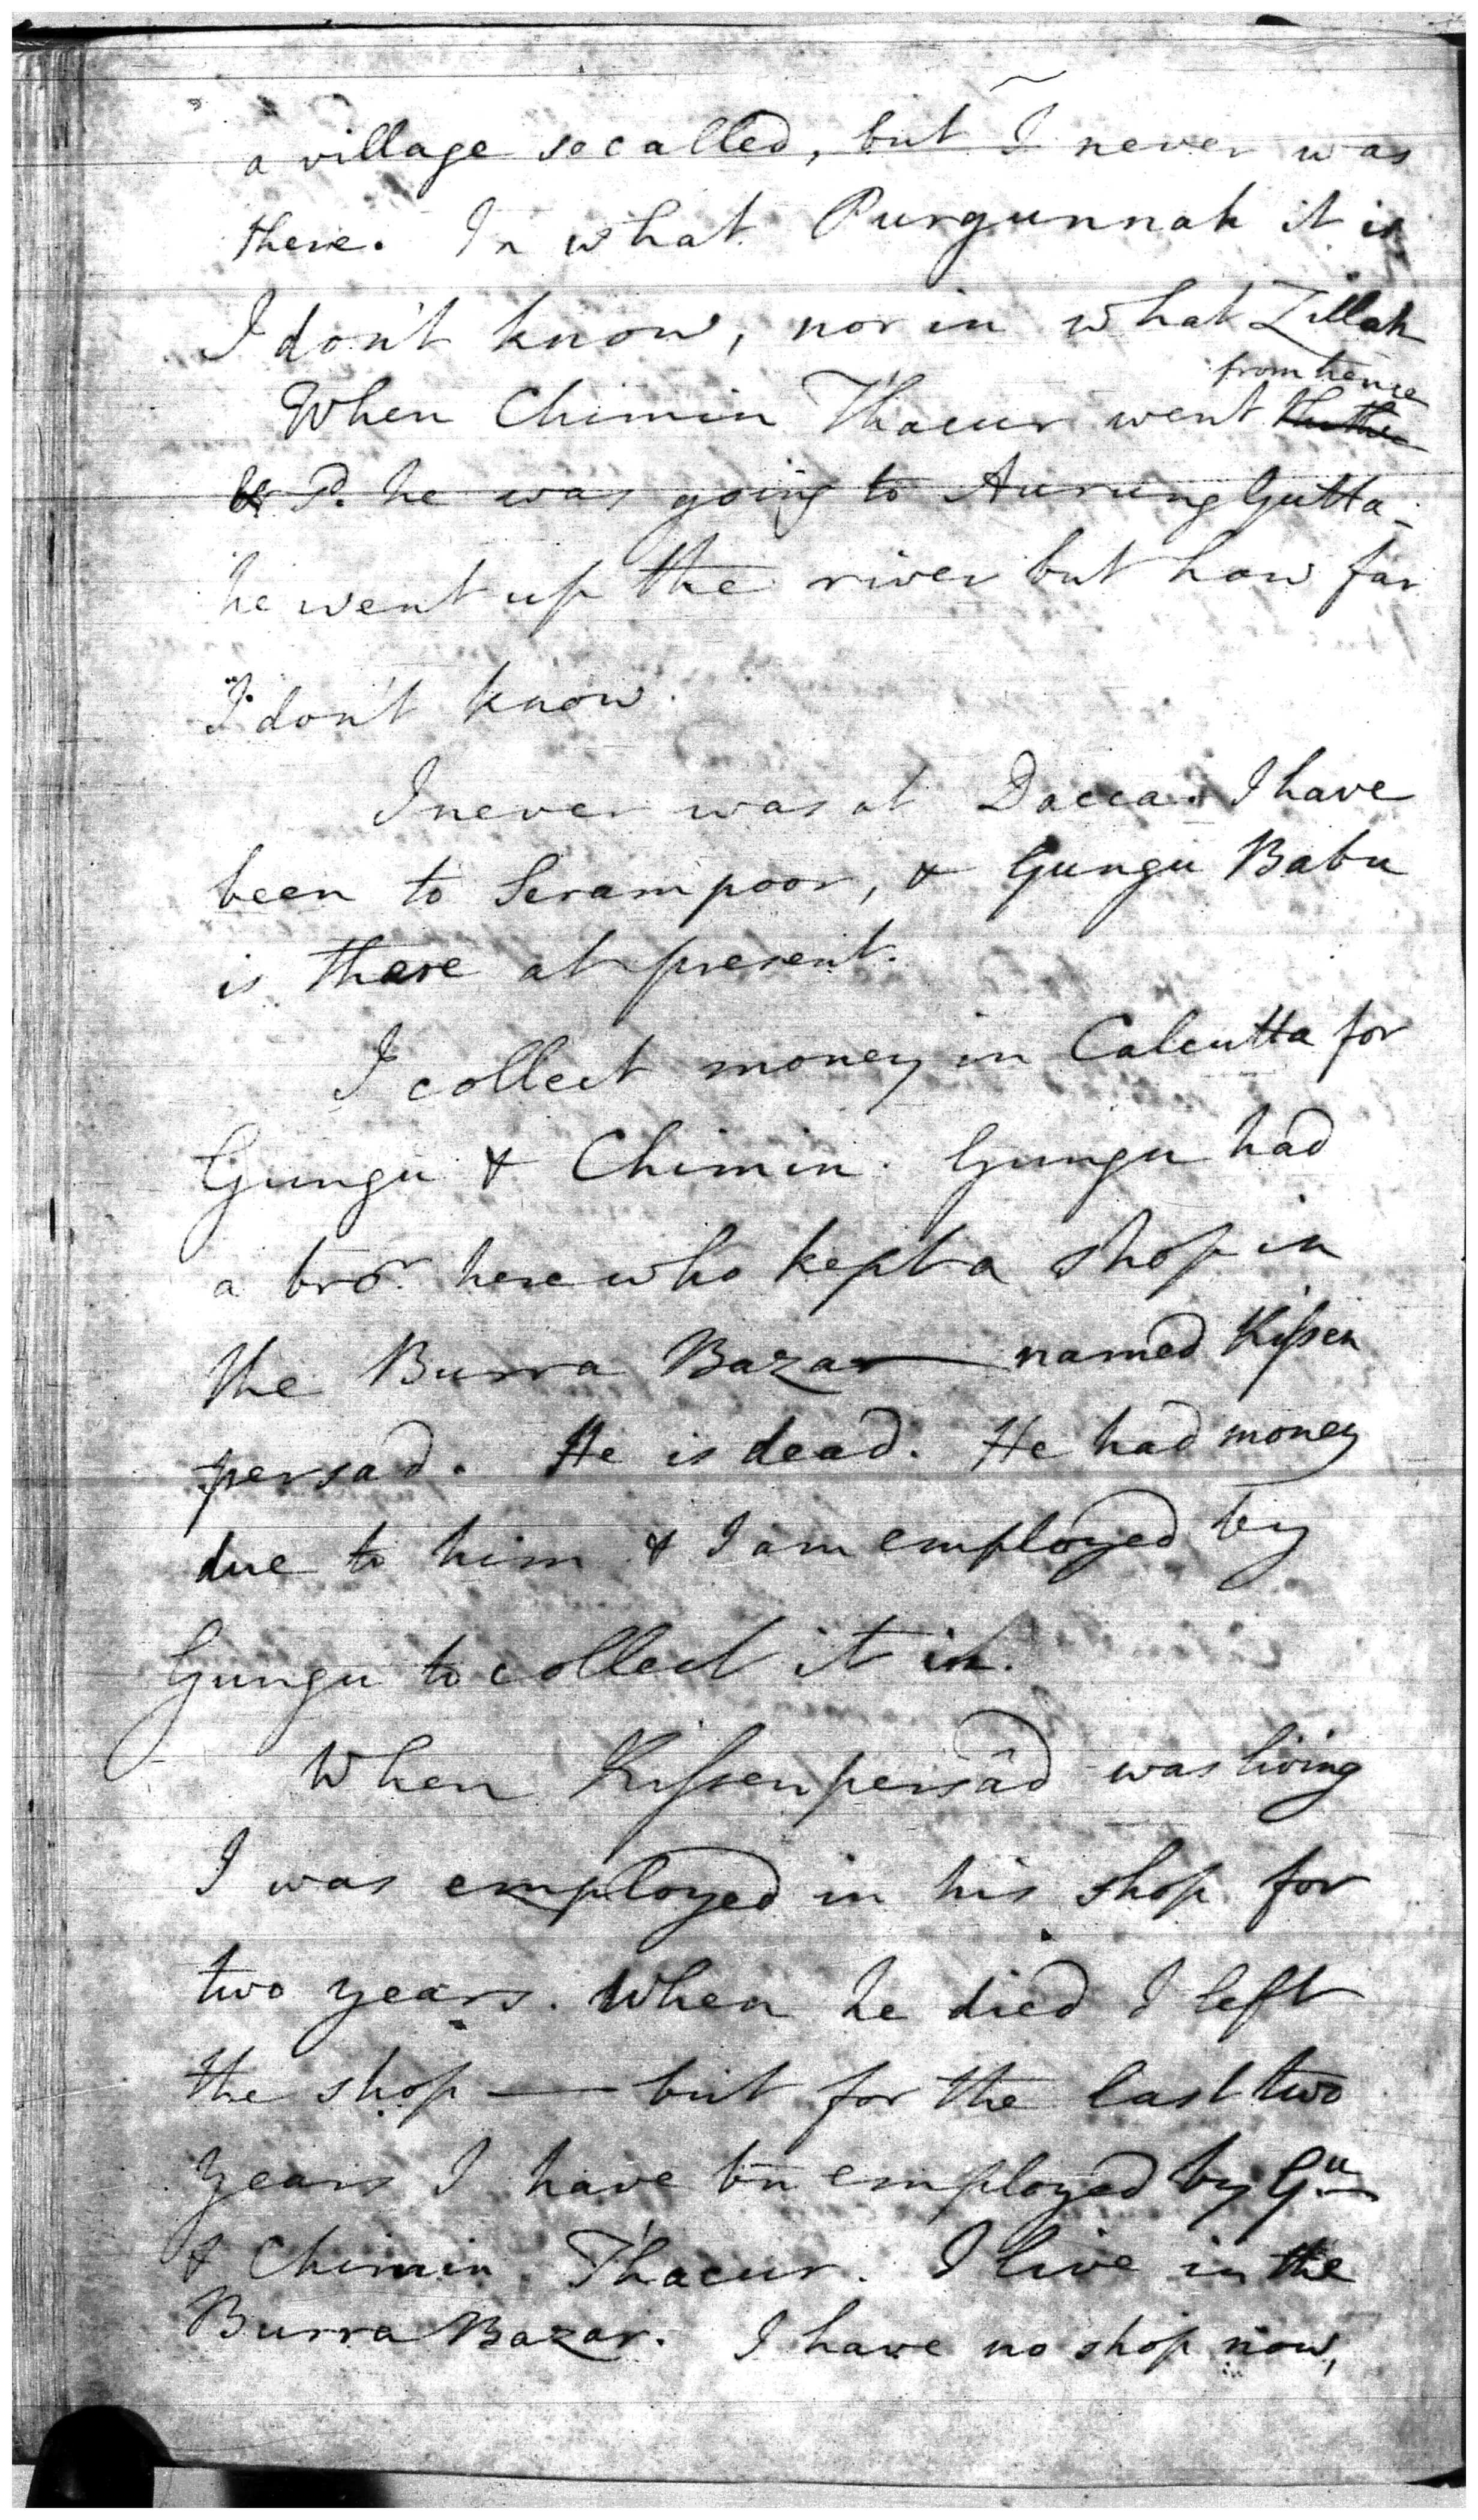 a village so called, but I never was
there. In what Purgunnah it is
I don't know, nor in what Zillah
from hence
When Chimin T'hacur went
he sd. he was going to Aurung Gutta -
he went up the river but how far
I don't know.
I never was at Dacca. I have
been to Serampoor, & Gungu Babu
is there at present.
I collect money in Calcutta for
Gungu & Chimin. Gungu had
a bror. here who kept a shop in
the Burra Bazar — named Kissen
persad. He is dead. He had money
due to him & I am employed by
Gungu to collect it in.
When Kissenpersâd was living
I was employed in his shop for
two years. When he died I left
the shop — but for the last two
years I have bn employed by Gu.
& Chimin T'hacur. I live in the
Burra Bazar. I have no shop now,